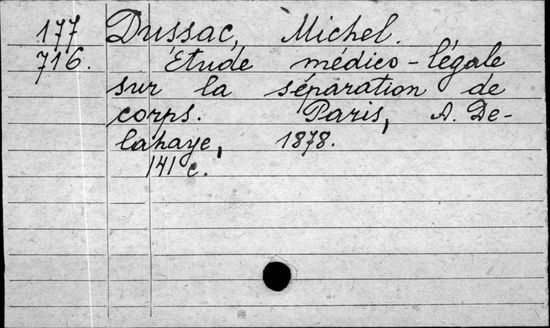 177 Dussac, Michel.
716. Étude médico-légale
sur la séparation de
corps. Paris, A. De-
lahaye, 1878.
141 c.